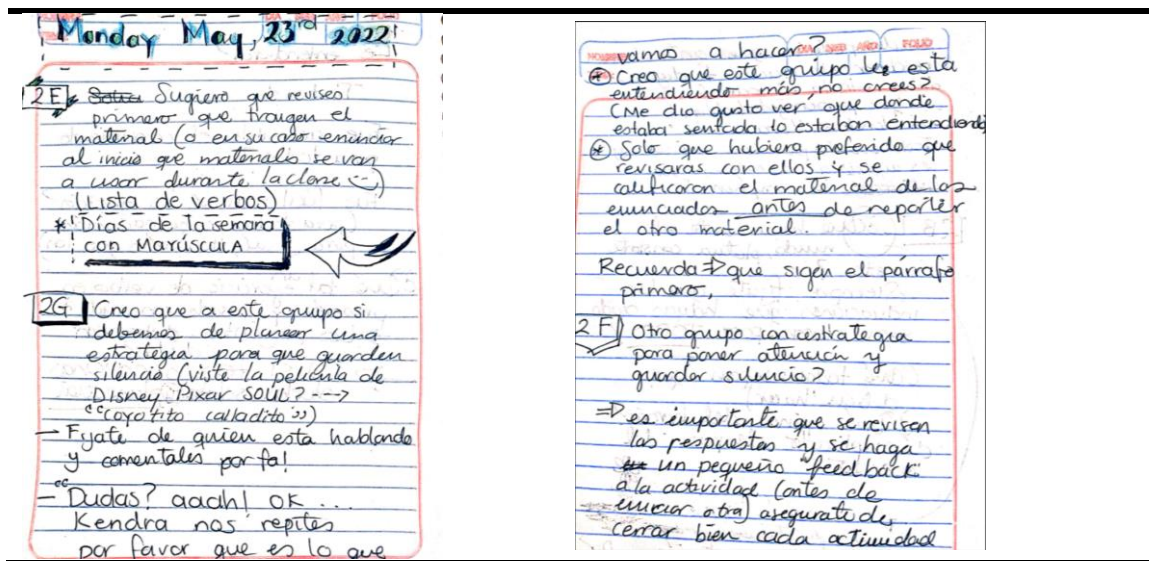 Monday May, 23rd 2022
2E * Sugiero que revises
primero que traigan el
material (o en su caso enunciar
al inicio que materiales se van
a usar durante la clase :)
(Lista de verbos)
* Días de la semana
con MAYÚSCULA
2G Creo que a este grupo si
debemos de planear una
estrategia para que guarden
silencio (viste la película de
Disney Pixar SOUL? --->
"coyotito calladito")
- Fijate de quien esta hablando
y comentales porfa!
- "Dudas? aaah! OK...
Kendra nos repites
por favor que es lo que
vamos a hacer?
* Creo que este grupo le esta
entendiendo más, no crees?
(Me dio gusto ver que donde
estaba sentada lo estaban entendiendo)
* Solo que hubiera preferido que
revisaras con ellos y se
calificaron el material de los
enunciados antes de repartir
el otro material.
Recuerda => que sigen el párrafo
primero,
2F Otro grupo con estrategia
para poner atención y
guardar silencio?
=> es importante que se revisen
las respuestas y se haga
un pequeño feedback
a la actividad (antes de
enunciar otra) asegurate de
cerrar bien cada actividad